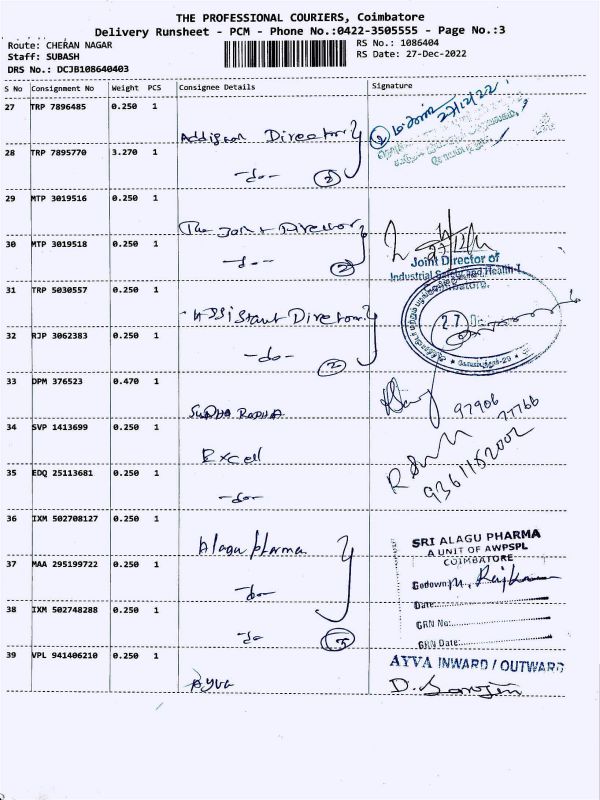 THE PROFESSIONAL COURIERS, Coimbatore
Delivery Runsheet - PCM - Phone No.:0422-3505555 - Page No.:3
Route: CHERAN NAGAR
RS No.: 1086404
Staff: SUBASH
RS Date: 27-Dec-2022
DRS No.: DCJB108640403
S No Consignment No Weight PCS Consignee Details Signature
27 TRP 7896485 0.250 1
Director
28 TRP 7895770 3.270 1
-do-
29 MTP 3019516 0.250 1
The Joint Director
30 MTP 3019518 0.250 1
-do-
2
27/12/22
Joint Director of
Industrial Safety and Health-I
31 TRP 5030557 0.250 1
Assistant Director
32 RJP 3062383 0.250 1
-do-
2
33 DPM 376523 0.470 1
SUDHA RADHA
97906
27766
34 SVP 1413699 0.250 1
Excell
9361152002
35 EDQ 25113681 0.250 1
-do-
36 IXM 502708127 0.250 1
Alagu pharma
SRI ALAGU PHARMA
A UNIT OF AWPSPL
COIMBATORE
37 MAA 295199722 0.250 1
-do-
Godown
Date:
38 IXM 502748288 0.250 1
-do-
GRN No:
GRN Date:
39 VPL 941406210 0.250 1
Ayva
AYVA INWARD / OUTWARD